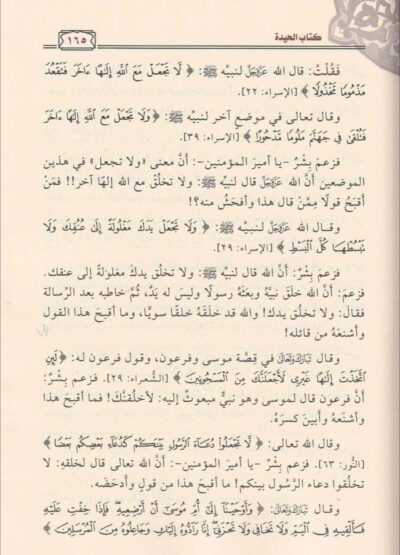 كتاب الحيدة
١٦٥
فَقُلْتُ: قال الله عَزَّوَجَلَّ لنبيِّه ﷺ: ﴿ لَّا تَجْعَلْ مَعَ اللَّهِ إِلَٰهًا ءَاخَرَ فَتَقْعُدَ
مَذْمُومًا مَّخْذُولًا ﴾ [الإسراء: ٢٢].
وقال تعالى في موضعٍ آخر لنبيِّه ﷺ: ﴿ وَلَا تَجْعَلْ مَعَ اللَّهِ إِلَٰهًا ءَاخَرَ
فَتُلْقَىٰ فِي جَهَنَّمَ مَلُومًا مَّدْحُورًا ﴾ [الإسراء: ٣٩].
فزعمَ بِشْرٌ -يا أميرَ المؤمنين-: أنَّ معنى «ولا تجعل» في هذين
الموضعين أنَّ الله عَزَّوَجَلَّ قال لنبيِّه ﷺ: ولا تخلُقْ مع الله إلهًا آخر!! فمَنْ
أقبَحُ قولًا مِمَّن قال هذا وأفحَشُ منه؟!
وقال الله عَزَّوَجَلَّ لنبيِّه ﷺ: ﴿ وَلَا تَجْعَلْ يَدَكَ مَغْلُولَةً إِلَىٰ عُنُقِكَ وَلَا
تَبْسُطْهَا كُلَّ الْبَسْطِ ﴾ [الإسراء: ٢٩].
فزعمَ بِشْرٌ: أنَّ الله قال لنبيِّه ﷺ: ولا تخلُق يدكَ مغلولةً إلى عنقك.
فزعمَ: أنَّ الله خلَقَ نبيَّهُ وبَعَثَهُ رسولًا وليس له يَدٌ، ثُمَّ خاطبه بعد الرسالة
فقال: ولا تخلُق يدك! والله قد خلَقَهُ خلقًا سويًّا، وما أقبَحَ هذا القول
وأشنعَهُ من قائله!
وقال تَبَارَكَ وَتَعَالَىٰ في قِصَّة موسى وفرعون، وقول فرعون له: ﴿ لَئِنِ
اتَّخَذْتَ إِلَٰهًا غَيْرِي لَأَجْعَلَنَّكَ مِنَ الْمَسْجُونِينَ ﴾ [الشُّعراء: ٢٩]. فزعم بِشْرٌ:
أنَّ فرعون قال لموسى وهو نبيٌّ مبعوثٌ إليه: لأخلُقنَّكَ! فما أقبَحَ هذا
وأشنَعَهُ وأبينَ كسرَهُ.
وقال الله تعالى: ﴿ لَّا تَجْعَلُوا دُعَاءَ الرَّسُولِ بَيْنَكُمْ كَدُعَاءِ بَعْضِكُم بَعْضًا ﴾
[النُّور: ٦٣]. فزعم بِشْرٌ -يا أمير المؤمنين-: أنَّ الله تعالى قال لخلقهِ: لا
تخلُقوا دعاء الرَّسُول بينكم! ما أقبَحَ هذا من قولٍ وأدحَضَه.
وقال تَبَارَكَ وَتَعَالَىٰ: ﴿ وَأَوْحَيْنَا إِلَىٰ أُمِّ مُوسَىٰ أَنْ أَرْضِعِيهِ فَإِذَا خِفْتِ عَلَيْهِ
فَأَلْقِيهِ فِي الْيَمِّ وَلَا تَخَافِي وَلَا تَحْزَنِي إِنَّا رَادُّوهُ إِلَيْكِ وَجَاعِلُوهُ مِنَ الْمُرْسَلِينَ ﴾